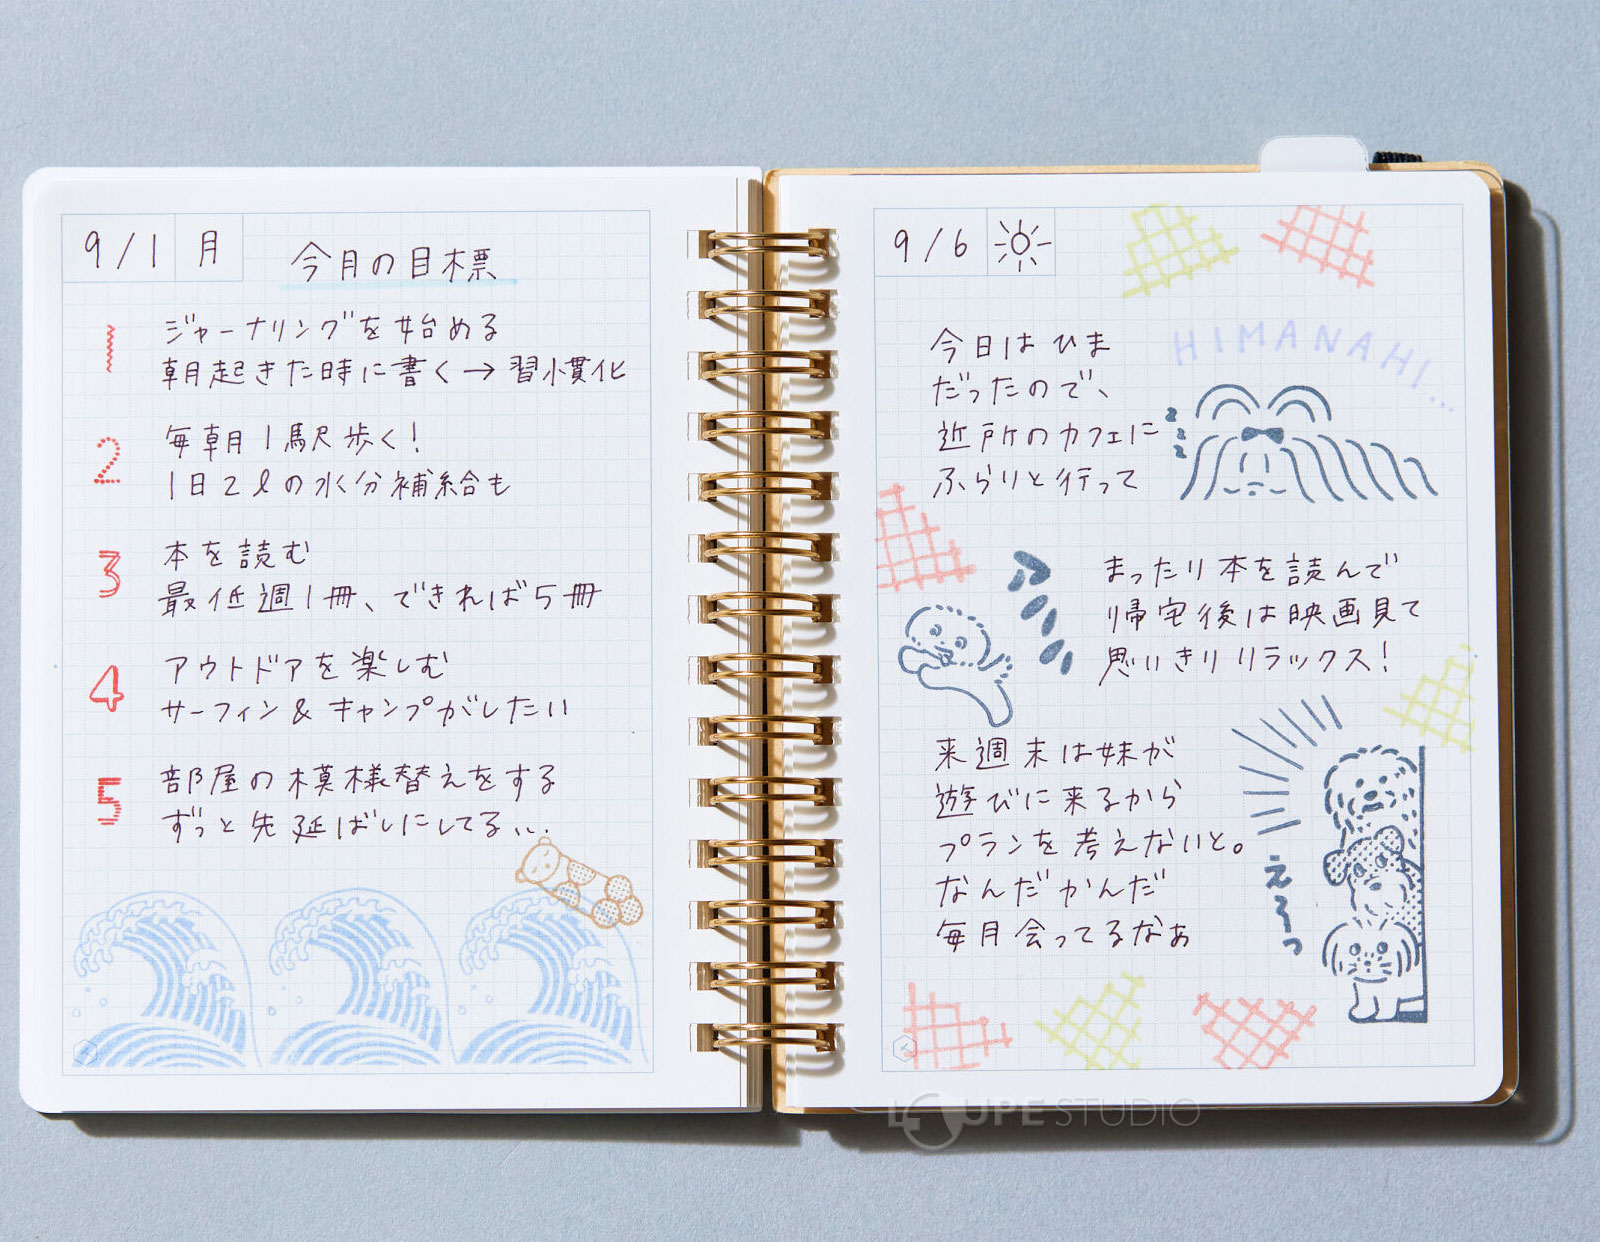 9/1 月
今月の目標
1 ジャーナリングを始める
朝起きた時に書く→習慣化
2 毎朝1駅歩く!
1日2ℓの水分補給も
3 本を読む
最低週1冊、できれば5冊
4 アウトドアを楽しむ
サーフィン&キャンプがしたい
5 部屋の模様替えをする
ずっと先延ばしにしてる...
9/6
HIMANAHI...
今日はひま
だったので、
近所のカフェに
ふらりと行って
zzz
まったり本を読んで
帰宅後は映画見て
思いきりリラックス!
来週末は妹が
遊びに来るから
プランを考えないと。
なんだかんだ
毎月会ってるなぁ
LOUPE STUDIO